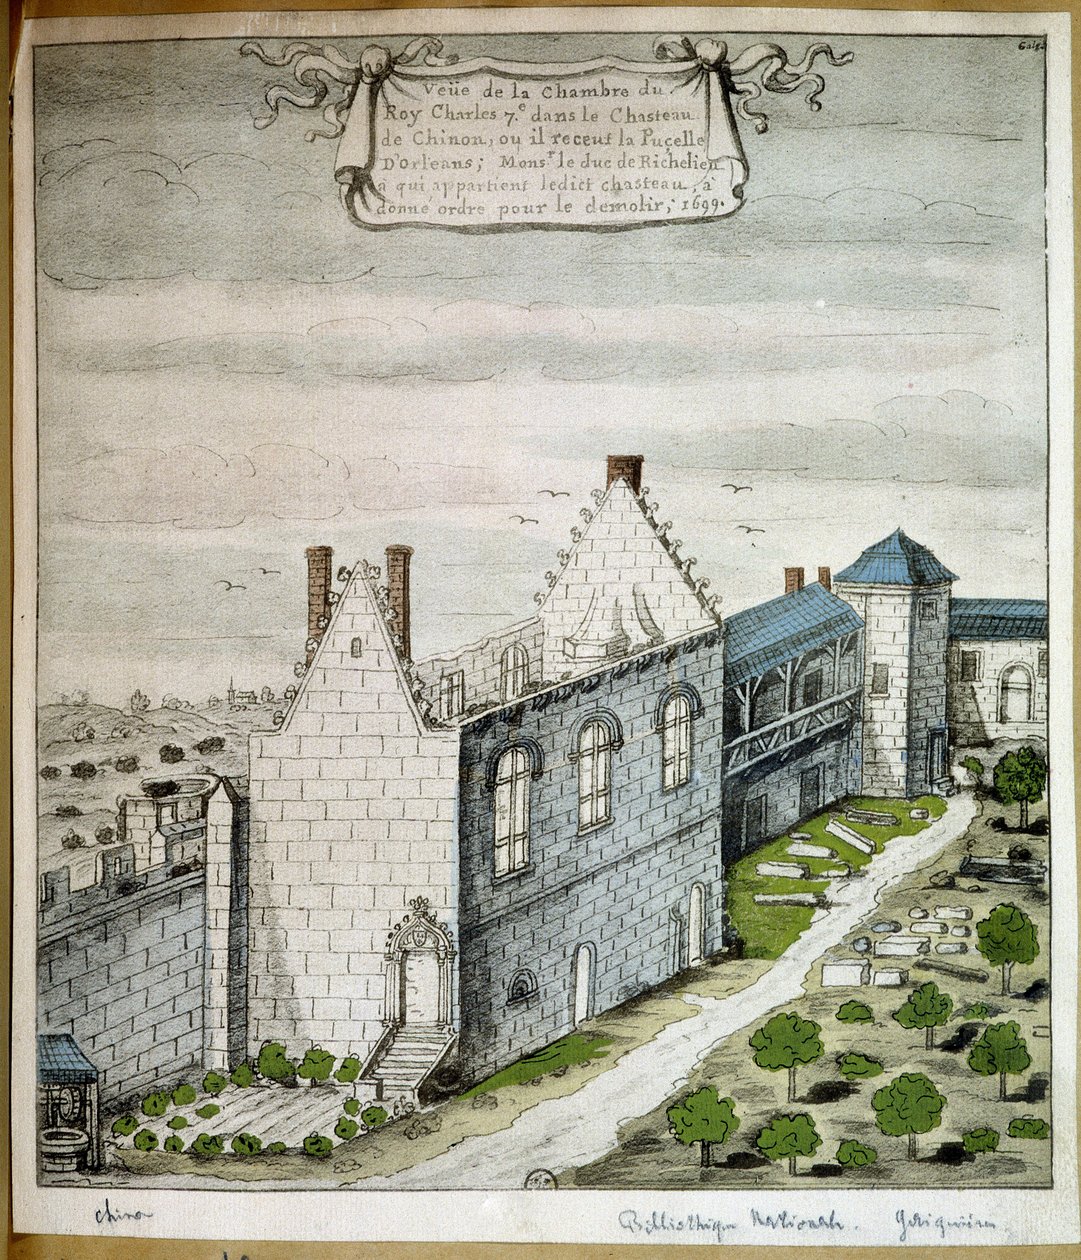 Veüe de la Chambre du
Roy Charles 7.e dans le Chasteau
de Chinon, ou il receut la Puçelle
D'orleans; Monsr. le duc de Richelieu
a qui appartient ledict chasteau, à
donné ordre pour le demolir; 1699.
Bibliothèque Nationale.